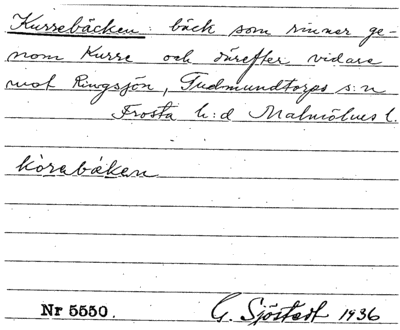 Kurrebäcken: bäck som rinner ge-
nom Kurre och därefter vidare
mot Ringsjön, Gudmundtorps s:n
Frosta h:d Malmöhus l.
kòrabäken
Nr 5550.
G. Sjöstedt 1936